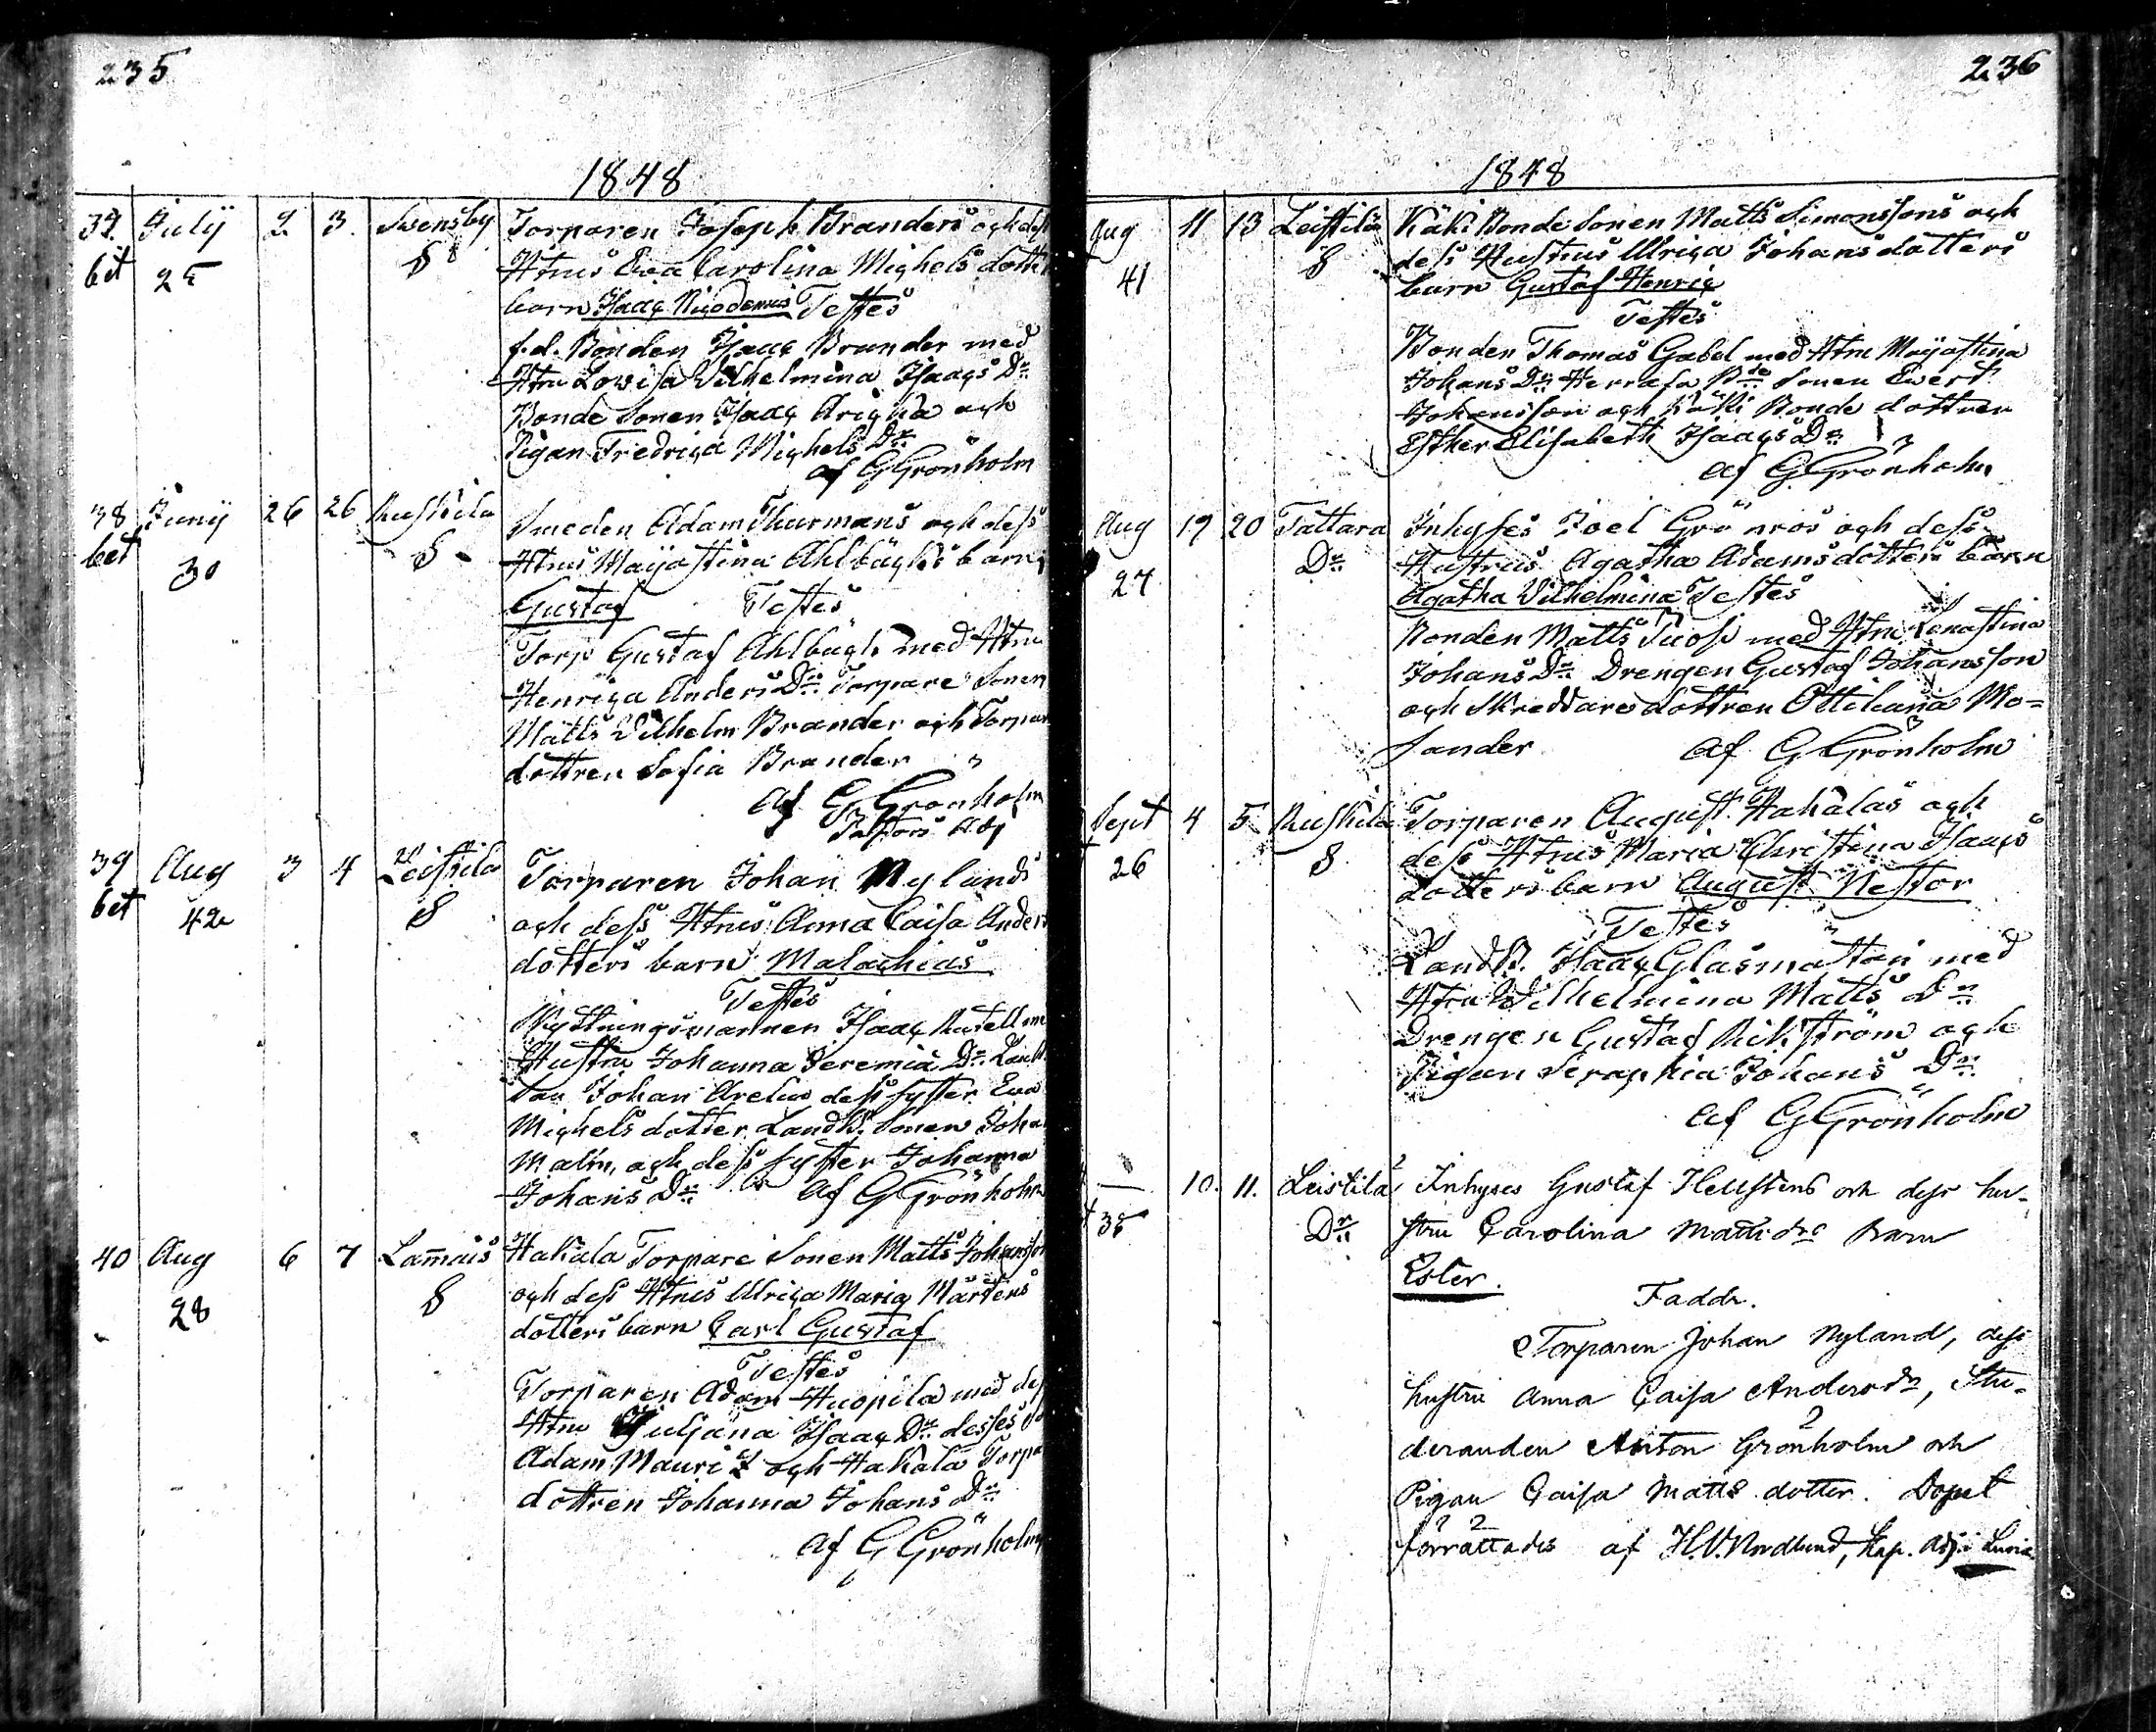 235
1848
37. July 2 3. Swensby Torparen Joseph Branders och dess
bet 25 S Hus Eva Carolina Michels dotters
barn Isaac Nicodemus Testes
f.d. Bonden Isaac Brander med
Hru Lowisa Wilhelmina Isaacs Dr
Bonde Sonen Isaac och
Pigan Fredrica Michels Dr
af G Grönholm
38 Juny 26 26 Ruskila Smeden Adam Thurmans och dess
bet 30 S Hrus Majastina Ahlbäcks barn
Gustaf Testes
Torp Gustaf Ahlbäck med Hru
Henrica Anders Dr Torpare Sonen
Matts Wilhelm Brander och Torpar
dottren Sofia Brander
af G Grönholm
Pastors Adj
39 Aug 3 4 Leistila Torparen Johan Nylands
bet 42 S och dess Hrus Anna Caisa Anders
dotters barn Malachias
Testes
Isaac
Hustru Johanna Jeremia Dr
Johan dess syster Eva
Michels dotter LandB. Sonen Joha
Malm, och dess syster Johanna
Johans Dr af G Grönholm
40 Aug 6 7 Lamais Hakala Torpare Sonen Matts Johansson
28 S och dess Hrus Ulrica Maria Mårtens
dotters barn Carl Gustaf
Testes
Torparen Adam Huopila med dess
Hru Juliana Isaac Dr desses
Adam Mauritz och Hakala Torpa
dottren Johanna Johans Dr
af G Grönholm
236
1848
Aug 11 13 Leistila Käki Bonde Sonen Matts Simonssons och
41 S dess Hustrus Ulrica Johans dotters
barn Gustaf Henric
Testes
Bonden Thomas Gabel med Hru Majastina
Johans Dr Sonen Ewert
Johansson och Käki Bonde dottren
Esther Elisabeth Isaacs Dr
af G Grönholm
Aug 19 20 Tattara Inhyses Joel Grönros och dess
27 Dr Hustrus Agatha Adams dotters barn
Agatha Wilhelmina Testes
Bonden Matts Tuosi med Hru Lenastina
Johans Dr Drengen Gustaf Johansson
och Skreddare dottren Ottiliana Mo=
sander af G Grönholm
Sept 4 5 Ruskila Torparen August Hakalas och
26 S dess Hrus Maria Christina Isaacs
dotters barn August Nestor
Testes
LandB. Isaac Glasmattari med
Hru Wilhelmina Matts Dr
Drengen Gustaf Rikström och
Pigan Seraphia Johans Dr
af G Grönholm
— 10. 11. Leistilä Inhyses Gustaf Hellstens och dess hu-
38 Dr stru Carolina Mattsdrs barn
Ester.
Faddr.
Torparen Johan Nyland, dess
hustru Anna Caisa Andersdr, Stu-
deranden Anton Grönholm och
Pigan Caisa Matts dotter. Dopet
förrättades af H.V. Nordlund, Kap. Adj. i Luvia